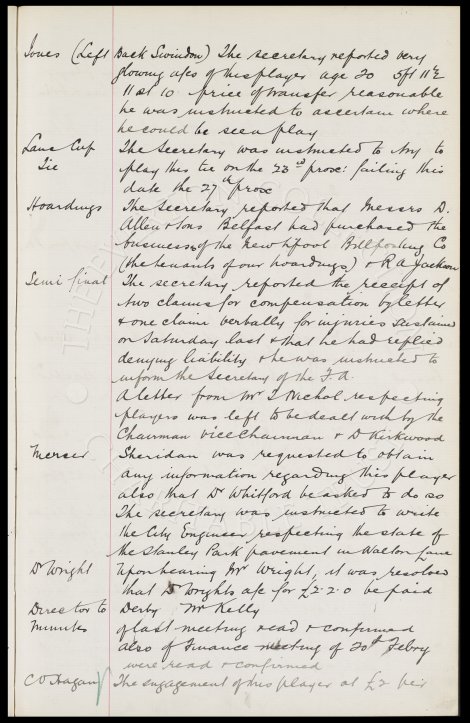 Jones (Left Back Swindon) The secretary reported very
glowing a/cs of this player age 20 5ft 11½
11st 10 price of transfer reasonable
he was instructed to ascertain where
he could be seen play
Lancs Cup The Secretary was instructed to try to
Tie play this tie on the 23rd prox: failing this
date the 27th prox
Hoardings The Secretary reported that Messrs D.
Allen & Sons Belfast had purchased the
business of the New L'pool Billposting Co
(the tenants of our hoardings) & R A Jackson
Semi final The secretary reported the receipt of
two claims for compensation by letter
& one claim verbally for injuries sustained
on Saturday last & that he had replied
denying liability & he was instructed to
inform the Secretary of the F.A.
A letter from Mr S Nichol respecting
players was left to be dealt with by the
Chairman Vice Chairman & D Kirkwood
Mercer Sheridan was requested to obtain
any information regarding this player
also that Dr Whitford be asked to do so
The secretary was instructed to write
the City Engineer respecting the state of
the Stanley Park pavement in Walton Lane
Dr Wright Upon hearing Mr Wright, it was resolved
that Dr Wrights a/c for £2.2.0 be paid
Director to Derby Mr Kelly
Minutes of last meeting read & confirmed
also of Finance meeting of 20th Febry
were read & confirmed
C O'Hagan The engagement of this player at £2 per